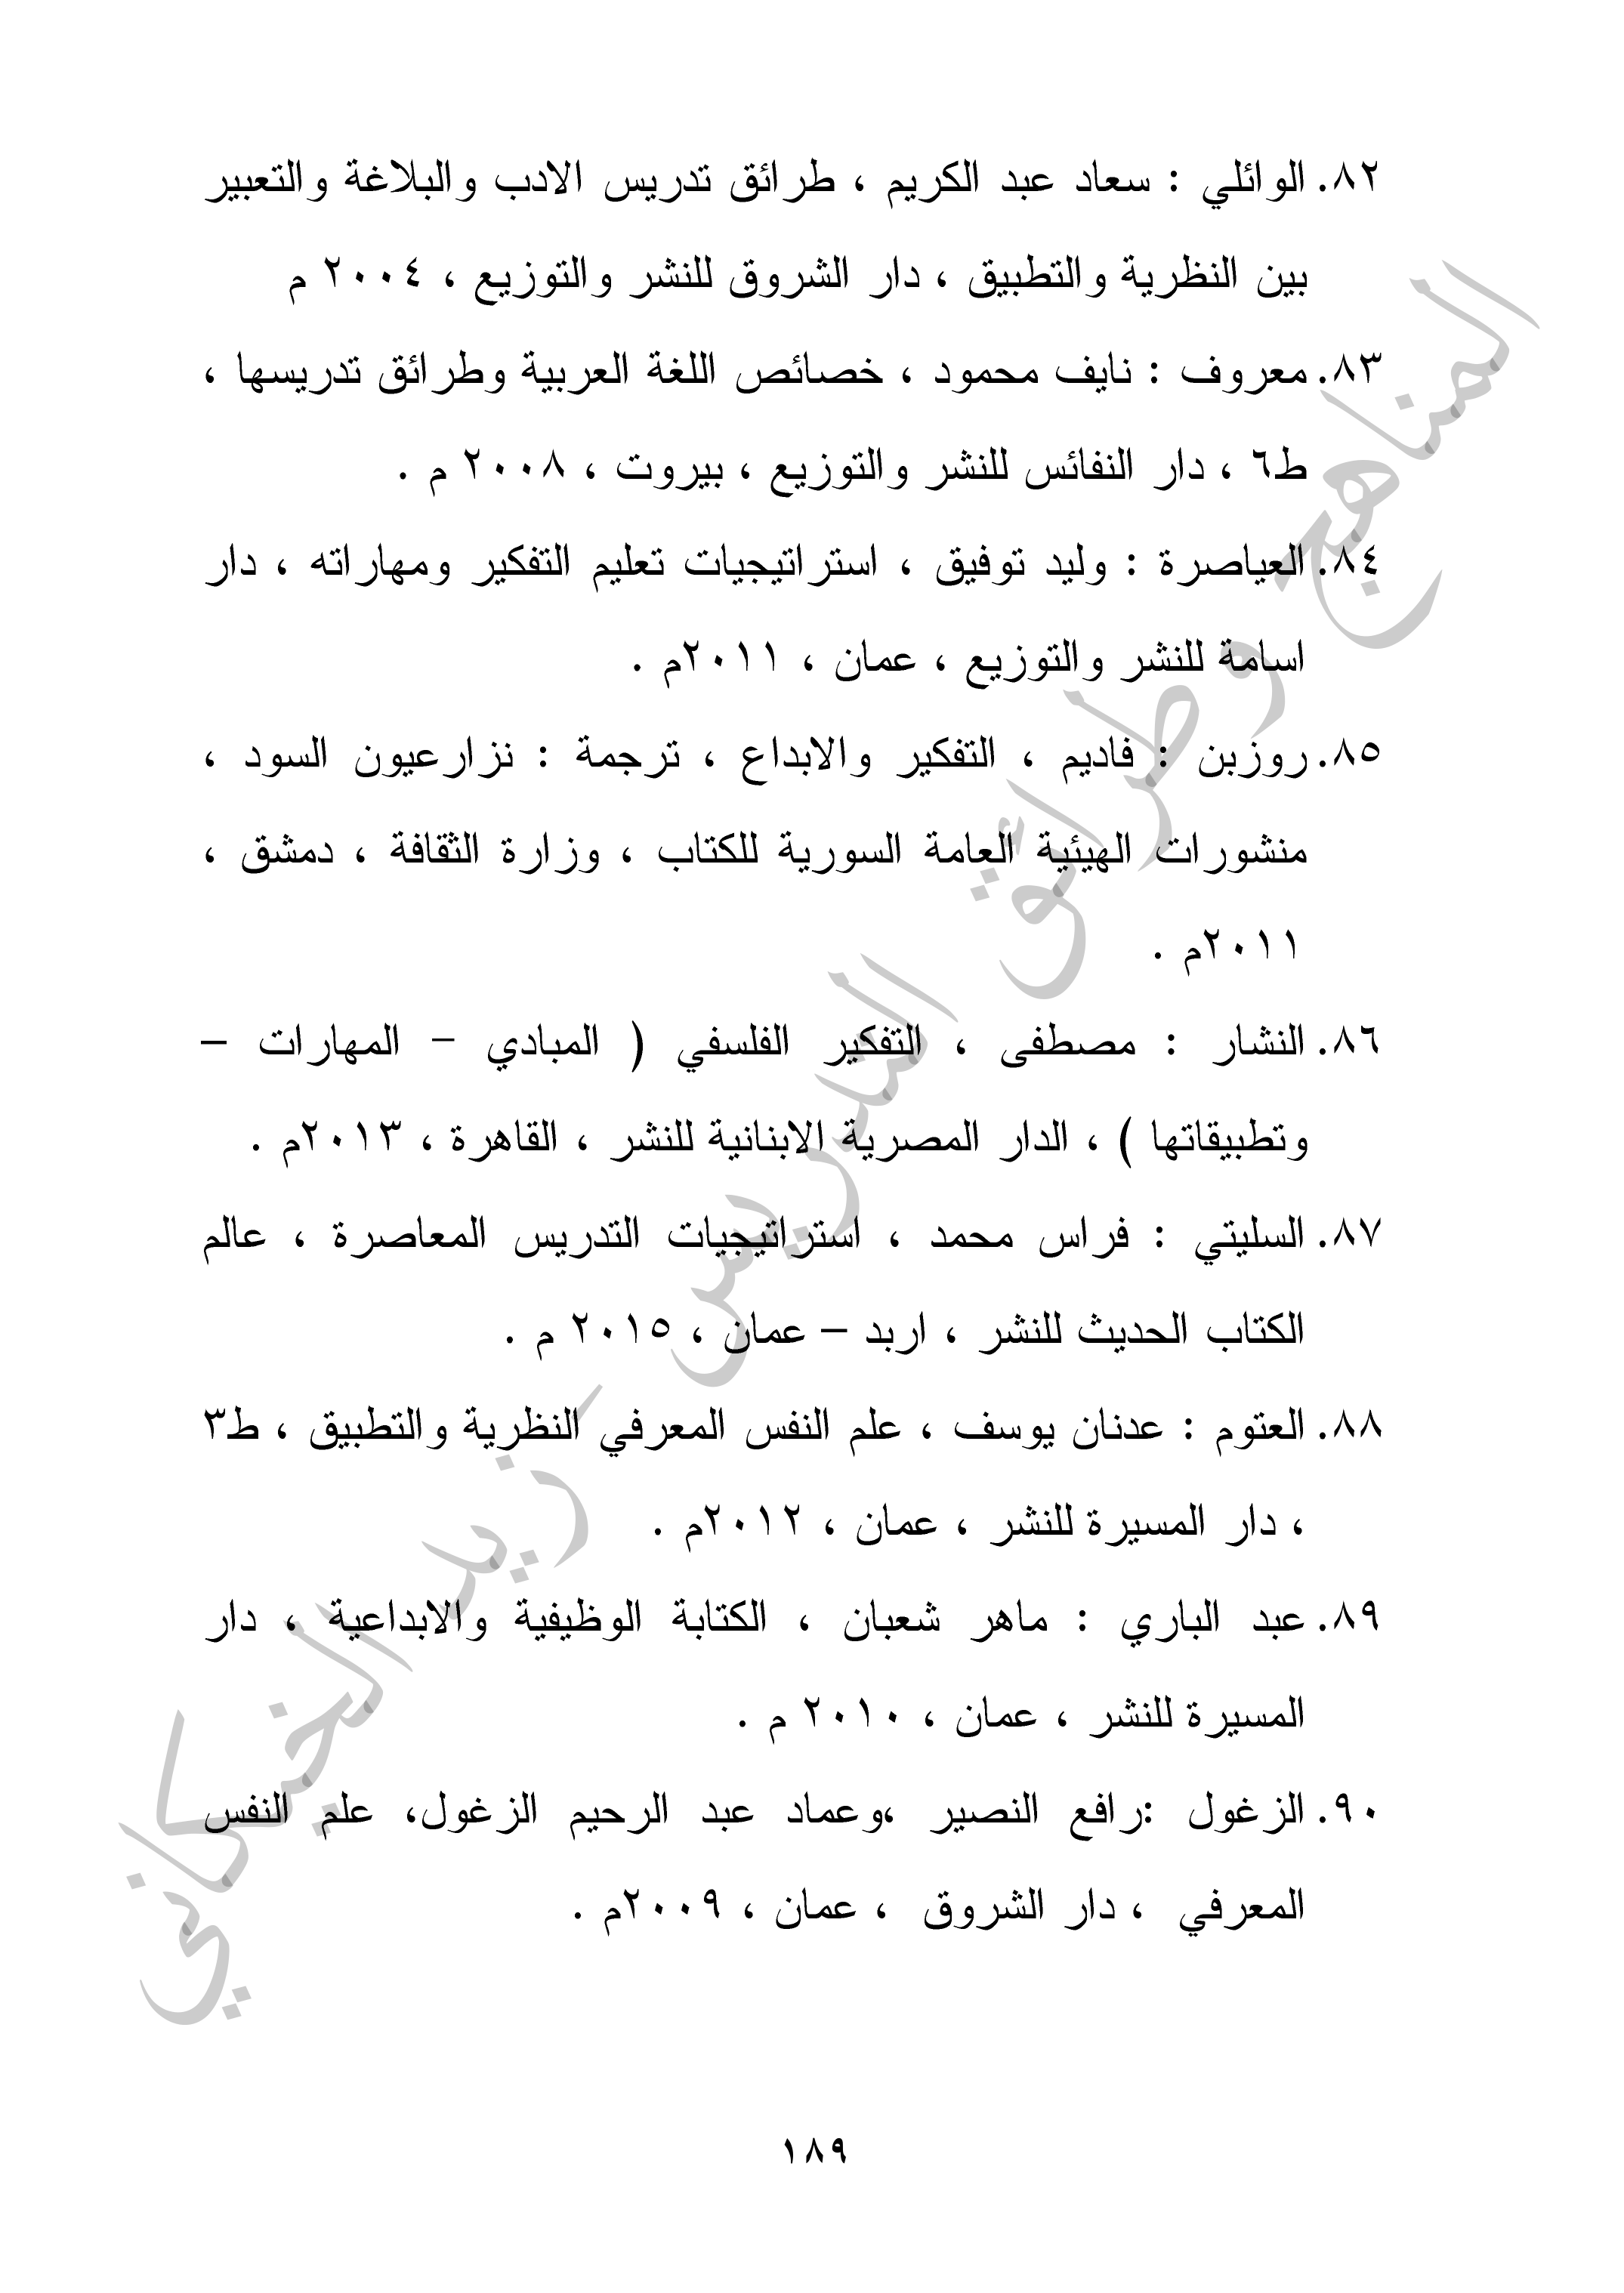 ٨٢. الوائلي : سعاد عبد الكريم ، طرائق تدريس الادب والبلاغة والتعبير
بين النظرية والتطبيق ، دار الشروق للنشر والتوزيع ، ٢٠٠٤ م
٨٣. معروف : نايف محمود ، خصائص اللغة العربية وطرائق تدريسها ،
ط٦ ، دار النفائس للنشر والتوزيع ، بيروت ، ٢٠٠٨ م .
٨٤. العياصرة : وليد توفيق ، استراتيجيات تعليم التفكير ومهاراته ، دار
اسامة للنشر والتوزيع ، عمان ، ٢٠١١م .
٨٥. روزبن : فاديم ، التفكير والابداع ، ترجمة : نزارعيون السود ،
منشورات الهيئية العامة السورية للكتاب ، وزارة الثقافة ، دمشق ،
٢٠١١م .
٨٦. النشار : مصطفى ، التفكير الفلسفي ( المبادي – المهارات –
وتطبيقاتها ) ، الدار المصرية الابنانية للنشر ، القاهرة ، ٢٠١٣م .
٨٧. السليتي : فراس محمد ، استراتيجيات التدريس المعاصرة ، عالم
الكتاب الحديث للنشر ، اربد – عمان ، ٢٠١٥ م .
٨٨. العتوم : عدنان يوسف ، علم النفس المعرفي النظرية والتطبيق ، ط٣
، دار المسيرة للنشر ، عمان ، ٢٠١٢م .
٨٩. عبد الباري : ماهر شعبان ، الكتابة الوظيفية والابداعية ، دار
المسيرة للنشر ، عمان ، ٢٠١٠ م .
٩٠. الزغول :رافع النصير ،وعماد عبد الرحيم الزغول، علم النفس
المعرفي ، دار الشروق ، عمان ، ٢٠٠٩م .
المناهج وطرائق التدريس – زيد الخيكاني
١٨٩